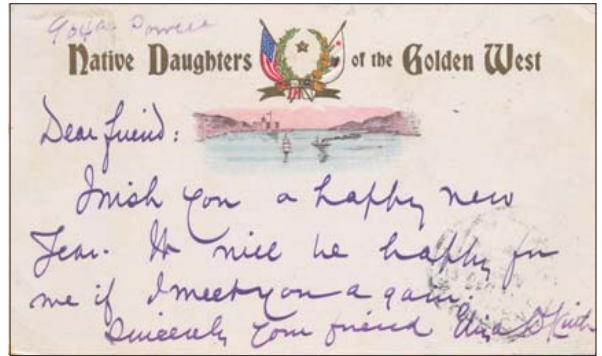 904a Powell
Native Daughters of the Golden West
Dear friend:
I wish you a happy new
Year. It will be happy for
me if I meet you again
Sincerely your friend Eliza D Keith